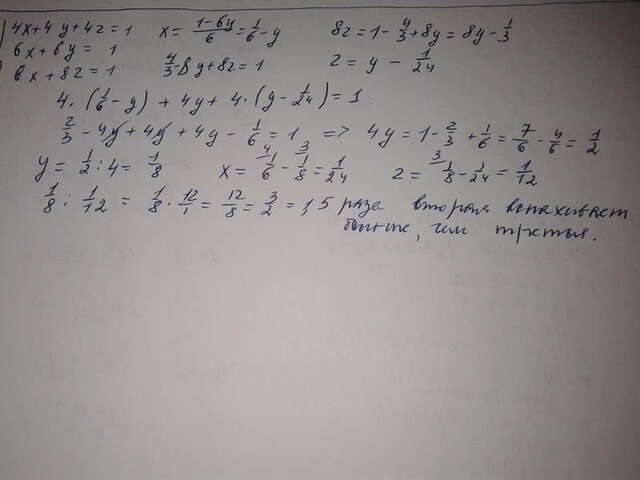 4x+4y+4z=1 x=(1-6y)/6=1/6-y 8z=1-4/3+8y=8y-1/3
6x+6y=1
8x+8z=1 4/3-8y+8z=1 z=y-1/24
4·(1/6-y)+4y+4·(y-1/24)=1.
2/3-4y+4y+4y-1/6=1 => 4y=1-2/3+1/6=7/6-4/6=1/2
y=1/2:4=1/8 x=1/6-1/8=1/24 z=1/8-1/24=1/12
1/8:1/12=1/8·12/1=12/8=3/2=1,5 раза вторая вспахивает
больше, чем третья.